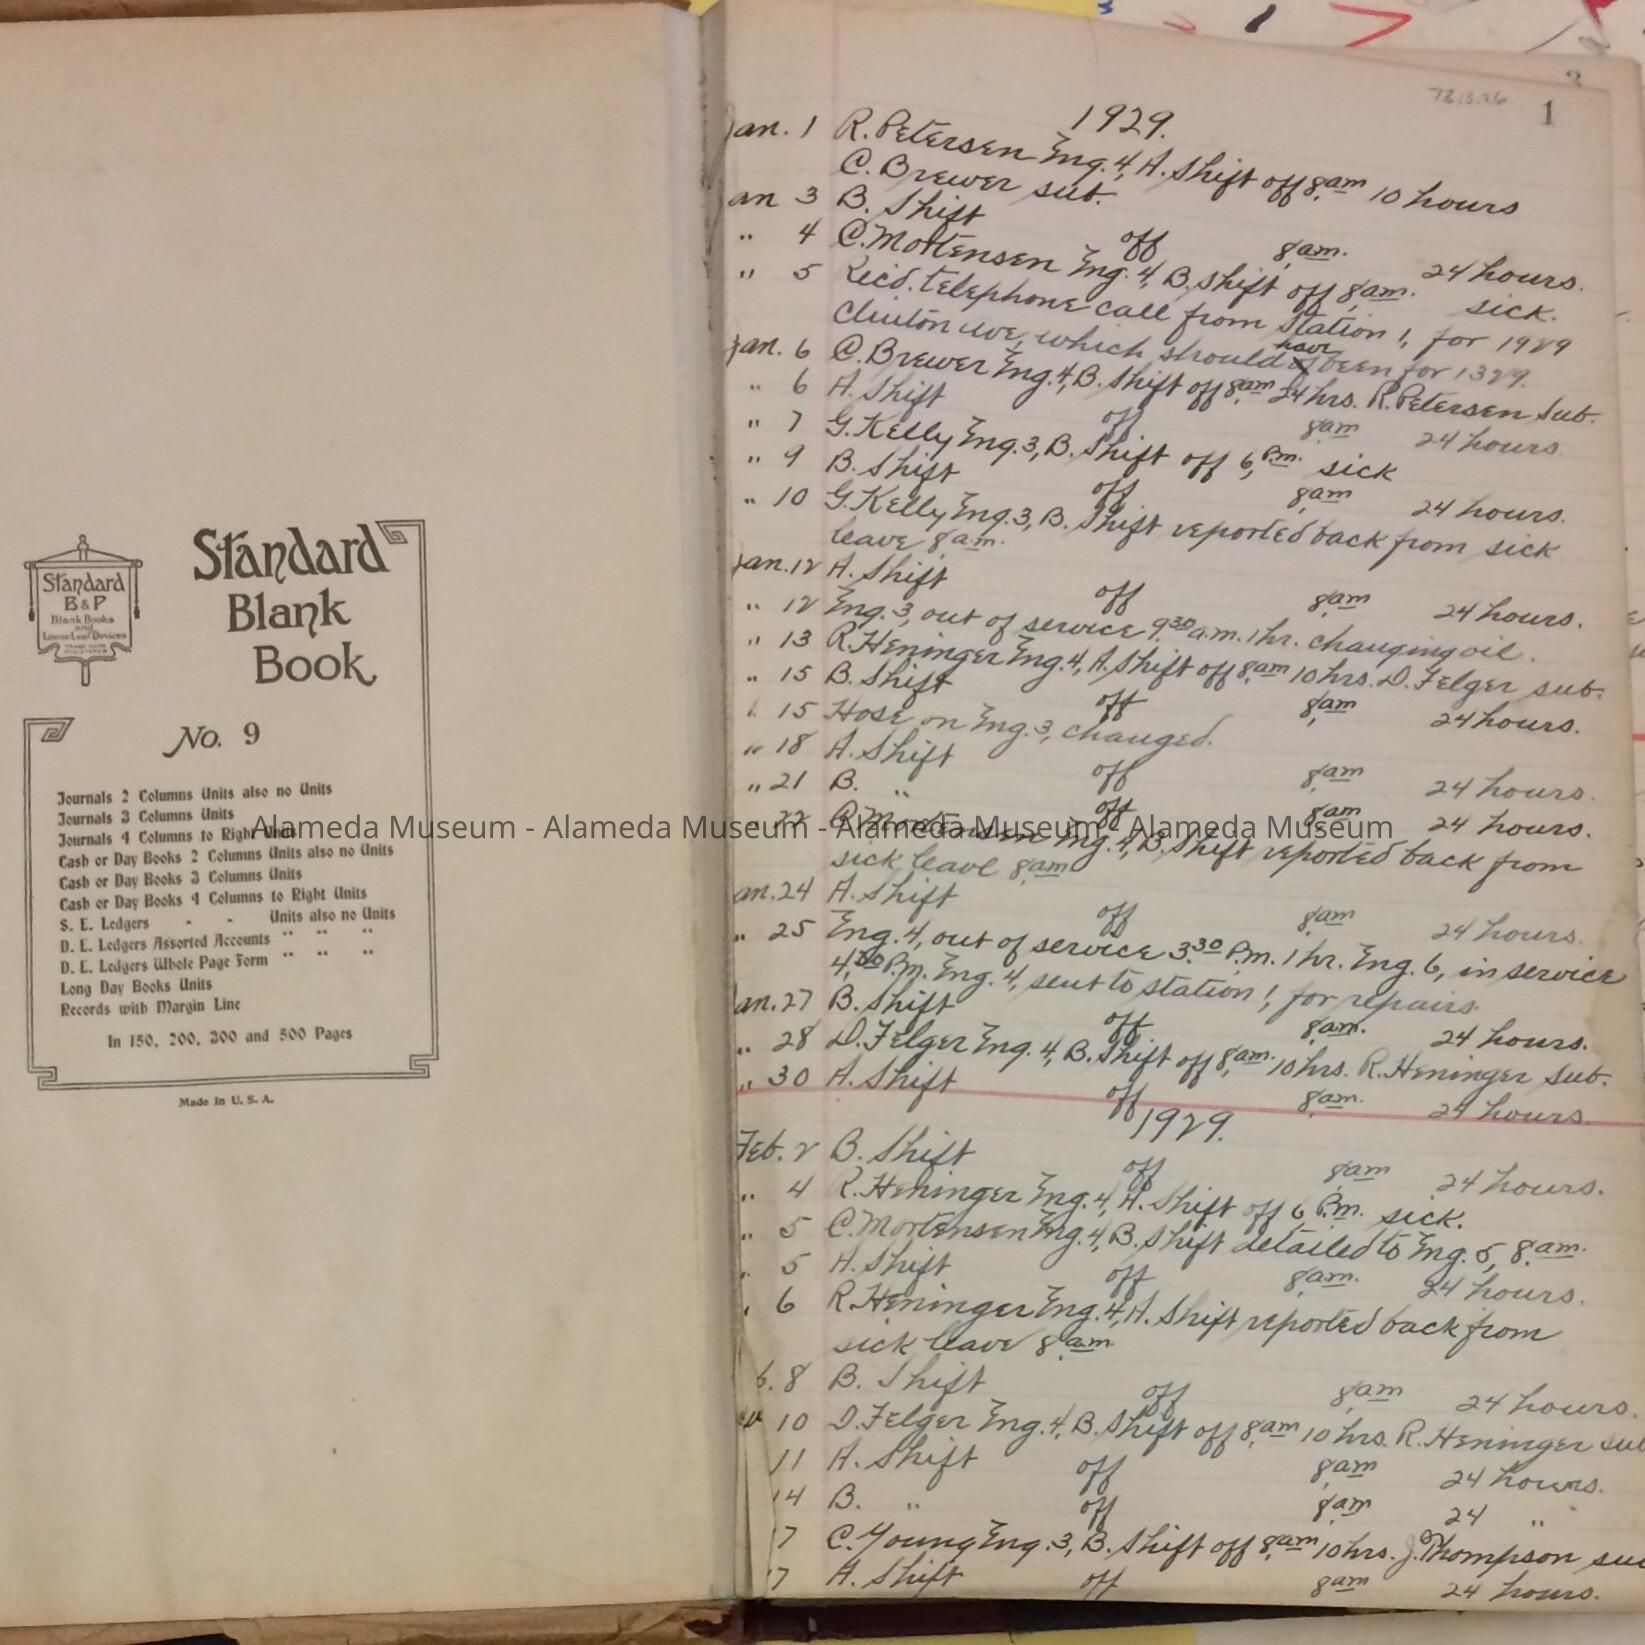 Standard
B & P
Blank Books
and
Loose Leaf Devices
TRADE MARK
REGISTERED
Standard
Blank
Book
No. 9
Journals 2 Columns Units also no Units
Journals 3 Columns Units
Journals 4 Columns to Right Units
Cash or Day Books 2 Columns Units also no Units
Cash or Day Books 3 Columns Units
Cash or Day Books 4 Columns to Right Units
S. E. Ledgers - - Units also no Units
D. E. Ledgers Assorted Accounts " " "
D. E. Ledgers Whole Page Form " " "
Long Day Books Units
Records with Margin Line
In 150, 200, 300 and 500 Pages
Made in U. S. A.
Alameda Museum - Alameda Museum - Alameda Museum - Alameda Museum
3
1
1929.
Jan. 1 R. Petersen Eng. 4, A. Shift off 8, am 10 hours
C. Brewer sub.
an 3 B. Shift off 8, am. 24 hours.
" 4 C. Mortensen Eng. 4, B. Shift off 8, am. sick.
" 5 Recd. telephone call from Station 1, for 1929
Clinton ave, which should have been for 1329.
Jan. 6 C. Brewer Eng. 4, B. Shift off 8, am 24 hrs. R. Petersen sub.
" 6 A. Shift off 8, am 24 hours
" 7 G. Kelly Eng. 3, B. Shift off 6, P.m. sick
" 9 B. Shift off 8, am 24 hours.
" 10 G. Kelly Eng. 3, B. Shift reported back from sick
leave 8, a.m.
Jan. 12 A. Shift off 8, am 24 hours.
" 12 Eng. 3, out of service 9.30 a.m. 1 hr. changing oil.
" 13 R. Heninger Eng. 4, A. Shift off 8, am 10 hrs. D. Felger sub.
" 15 B. Shift off 8, am 24 hours.
" 15 Hose on Eng. 3, changed.
" 18 A. Shift off 8, am 24 hours.
" 21 B. " off 8, am 24 hours.
" 22 C. Mortensen Eng. 4, B. Shift reported back from
sick leave 8, am
an. 24 A. Shift off 8, am 24 hours.
" 25 Eng. 4, out of service 3.30 P.m. 1 hr. Eng. 6, in service
4,00 P.m. Eng. 4, sent to station 1, for repairs.
an. 27 B. Shift off 8, am. 24 hours.
" 28 D. Felger Eng. 4, B. Shift off 8, am. 10 hrs. R. Heninger sub.
" 30 A. Shift off 8, am. 24 hours.
1929.
Feb. 2 B. Shift off 8, am 24 hours.
" 4 R. Heninger Eng. 4, A. Shift off 6 P.m. sick.
" 5 C. Mortensen Eng. 4, B. Shift detailed to Eng. 5, 8, am.
" 5 A. Shift off 8, am. 24 hours.
" 6 R. Heninger Eng. 4, A. Shift reported back from
sick leave 8, am
b. 8 B. Shift off 8, am 24 hours.
" 10 D. Felger Eng. 4, B. Shift off 8, am 10 hrs. R. Heninger sub
11 A. Shift off 8, am 24 hours.
14 B. " off 8, am 24 "
7 C. Young Eng. 3, B. Shift off 8, am 10 hrs. J. Thompson su
7 A. Shift off 8, am 24 hours.